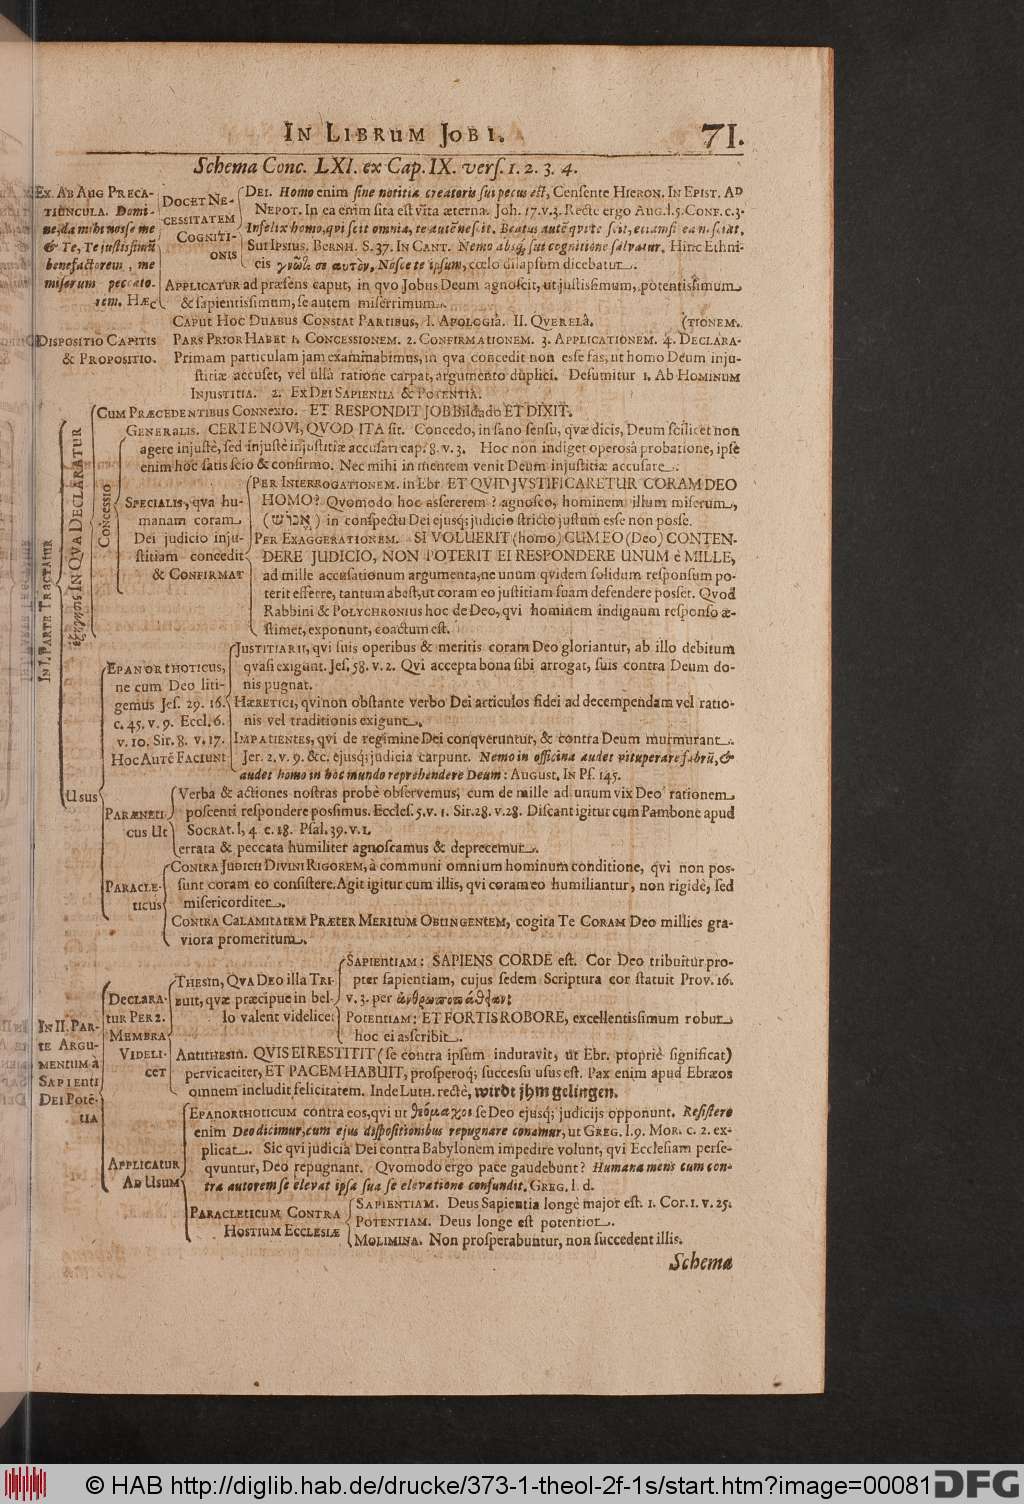 IN LIBRUM JOBI. 71.
Schema Conc. LXI. ex Cap. IX. vers. 1. 2. 3. 4.
Ex. AB AUG PRECA-
TIUNCULA. Domi-
ne, da mihi nosse me
& Te, Te justissimũ
benefactorem, me
miserum peccato-
rem. HÆC
DOCET NE-
CESSITATEM
COGNITI-
ONIS
DEI. Homo enim sine notitia creatoris sui pecus est, Censente HIERON. IN EPIST. AD
NEPOT. In ea enim sita est vita æterna. Joh. 17. v. 3. Recte ergo AUG. l. 5. CONF. c. 3.
Infelix homo, qvi scit omnia, te autẽ nescit. Beatus autẽ qvi te scit, etiamsi ea nesciat.
SUI IPSIUS. BERNH. S. 37. IN CANT. Nemo absq; sui cognitione salvatur. Hinc Ethni-
cis γνῶθι σεαυτὸν, Nosce te ipsum, cœlo dilapsum dicebatur.
APPLICATUR ad præsens caput, in qvo Jobus Deum agnoscit, ut justissimum, potentissimum
& sapientissimum, se autem miserrimum.
DISPOSITIO CAPITIS
& PROPOSITIO.
CAPUT HOC DUABUS CONSTAT PARTIBUS, I. APOLOGIÂ. II. QVERELÂ. (TIONEM.
PARS PRIOR HABET 1. CONCESSIONEM. 2. CONFIRMATIONEM. 3. APPLICATIONEM. 4. DECLARA-
Primam particulam jam examinabimus, in qva concedit non esse fas, ut homo Deum inju-
stitiæ accuset, vel ullâ ratione carpat, argumento duplici. Desumitur 1. AB HOMINUM
INJUSTITIA. 2. EX DEI SAPIENTIA & POTENTIA.
IN I. PARTE TRACTATUR
ἐξήγησις IN QVA DECLARATUR
CUM PRÆCEDENTIBUS CONNEXIO. ET RESPONDIT JOB Bildado ET DIXIT.
CONCESSIO
GENERALIS. CERTE NOVI, QVOD ITA sit. Concedo, in sano sensu, qvæ dicis, Deum scilicet non
agere injustè, sed injustè injustitiæ accusari cap. 8. v. 3. Hoc non indiget operosâ probatione, ipse
enim hoc satis scio & confirmo. Nec mihi in mentem venit Deum injustitiæ accusare.
SPECIALIS, qva hu-
manam coram
Dei judicio inju-
stitiam concedit
& CONFIRMAT
PER INTERROGATIONEM. in Ebr. ET QVID JVSTIFICARETUR CORAM DEO
HOMO? Qvomodo hoc assererem? agnosco, hominem illum miserum,
(אֱנוֹשׁ) in conspectu Dei ejusq; judicio stricto justum esse non posse.
PER EXAGGERATIONEM. SI VOLUERIT (homo) CUM EO (Deo) CONTEN-
DERE JUDICIO, NON POTERIT EI RESPONDERE UNUM è MILLE,
ad mille accusationum argumenta, ne unum qvidem solidum responsum po-
terit efferre, tantum abest, ut coram eo justitiam suam defendere posset. Qvod
Rabbini & POLYCHRONIUS hoc de Deo, qvi hominem indignum responso æ-
stimet, exponunt, coactum est.
USUS
EPANORTHOTICUS,
ne cum Deo liti-
gemus Jes. 29. 16.
c. 45. v. 9. Eccl. 6.
v. 10. Sir. 8. v. 17.
HOC AUTẼ FACIUNT
JUSTITIARII, qvi suis operibus & meritis coram Deo gloriantur, ab illo debitum
qvasi exigunt. Jes. 58. v. 2. Qvi accepta bona sibi arrogat, suis contra Deum do-
nis pugnat.
HÆRETICI, qvi non obstante verbo Dei articulos fidei ad decempendam vel ratio-
nis vel traditionis exigunt.
IMPATIENTES, qvi de regimine Dei conqveruntur, & contra Deum murmurant.
Jer. 2. v. 9. &c. ejusq; judicia carpunt. Nemo in officina audet vituperare fabrũ, &
audet homo in hoc mundo reprehendere Deum: AUGUST. IN Ps. 145.
PARÆNETI-
CUS UT
Verba & actiones nostras probè observemus, cum de mille ad unum vix Deo rationem
poscenti respondere possimus. Eccles. 5. v. 1. Sir. 28. v. 28. Discant igitur cum Pambone apud
SOCRAT. l. 4 c. 18. Psal. 39. v. 1.
errata & peccata humiliter agnoscamus & deprecemur.
PARACLE-
TICUS
CONTRA JUDICII DIVINI RIGOREM, à communi omnium hominum conditione, qvi non pos-
sunt coram eo consistere. Agit igitur cum illis, qvi coram eo humiliantur, non rigidè, sed
misericorditer.
CONTRA CALAMITATEM PRÆTER MERITUM OBTINGENTEM, cogita Te CORAM Deo millies gra-
viora promeritum.
IN II. PAR-
TE ARGU-
MENTUM à
SAPIENTI
DEI POTẼ-
TIA
DECLARA-
TUR PER 2.
MEMBRA
VIDELI-
CET
THESIN, QVA DEO illa TRI-
buit, qvæ præcipue in bel-
lo valent videlicet
SAPIENTIAM: SAPIENS CORDE est. Cor Deo tribuitur pro-
pter sapientiam, cujus sedem Scriptura cor statuit Prov. 16.
v. 3. per ἀνθρωποπάθειαν
POTENTIAM: ET FORTIS ROBORE, excellentissimum robur
hoc ei ascribit.
ANTITHESIN. QVIS EI RESTITIT (se contra ipsum induravit, ut Ebr. propriè significat)
pervicaciter, ET PACEM HABUIT, prosperoq; successu usus est. Pax enim apud Ebræos
omnem includit felicitatem. Inde LUTH. rectè, wirdt jhm gelingen.
APPLICATUR
AD USUM
EPANORTHOTICUM contra eos, qvi ut θεόμαχοι se Deo ejusq; judicijs opponunt. Resistere
enim Deo dicimur, cum ejus dispositionibus repugnare conamur, ut GREG. l. 9. MOR. c. 2. ex-
plicat. Sic qvi judicia Dei contra Babylonem impedire volunt, qvi Ecclesiam perse-
qvuntur, Deo repugnant. Qvomodo ergo pace gaudebunt? Humana mens cum con-
tra autorem se elevat ipsa sua se elevatione confundit. GREG. l. d.
PARACLETICUM CONTRA
HOSTIUM ECCLESIÆ
SAPIENTIAM. Deus Sapientia longè major est. 1. Cor. 1. v. 25.
POTENTIAM. Deus longe est potentior.
MOLIMINA. Non prosperabuntur, non succedent illis.
Schema
© HAB http://diglib.hab.de/drucke/373-1-theol-2f-1s/start.htm?image=00081
DFG